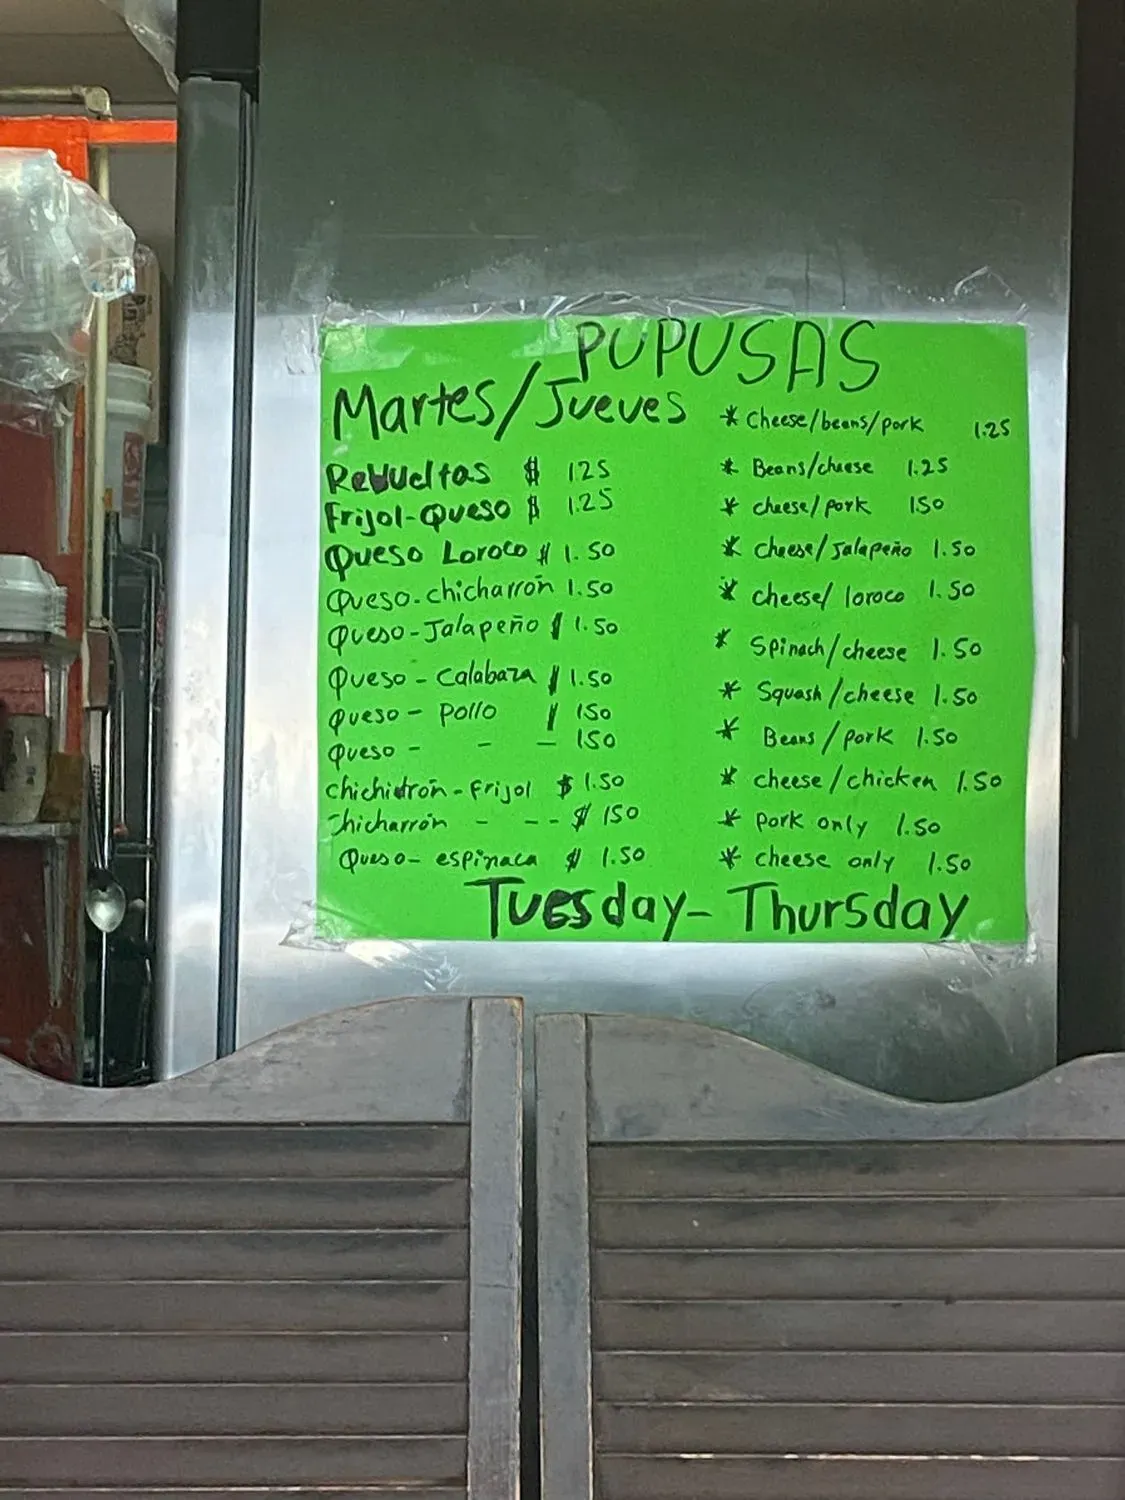 PUPUSAS
Martes/Jueves
Revueltas $ 125
Frijol-Queso $ 1.25
Queso Loroco $ 1.50
Queso-chicharrón 1.50
Queso-Jalapeño $ 1.50
Queso - Calabaza $ 1.50
Queso - Pollo $ 150
Queso - - - 150
chichidrón-frijol $ 1.50
chicharrón - - - $ 150
Queso- espinaca $ 1.50
* Cheese/beans/pork 1.25
* Beans/cheese 1.25
* cheese/pork 150
* cheese/Jalapeño 1.50
* cheese/ loroco 1.50
* Spinach/cheese 1.50
* Squash/cheese 1.50
* Beans/pork 1.50
* cheese/chicken 1.50
* pork only 1.50
* cheese only 1.50
Tuesday- Thursday